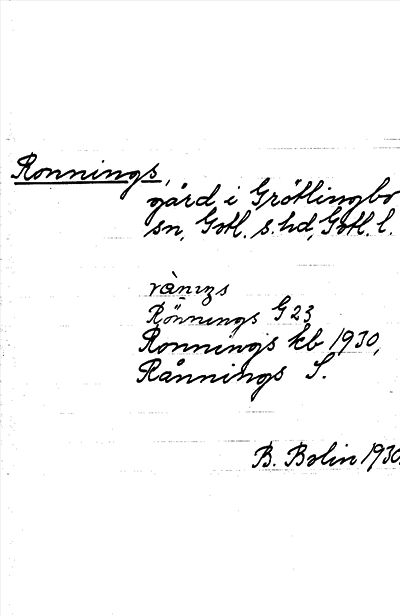 Ronnings,
gård i Grötlingbo
sn, Gotl. s. hd, Gotl. l.
Rönnings G 23
Ronnings kb 1930,
Rånnings S.
B. Bolin 1930